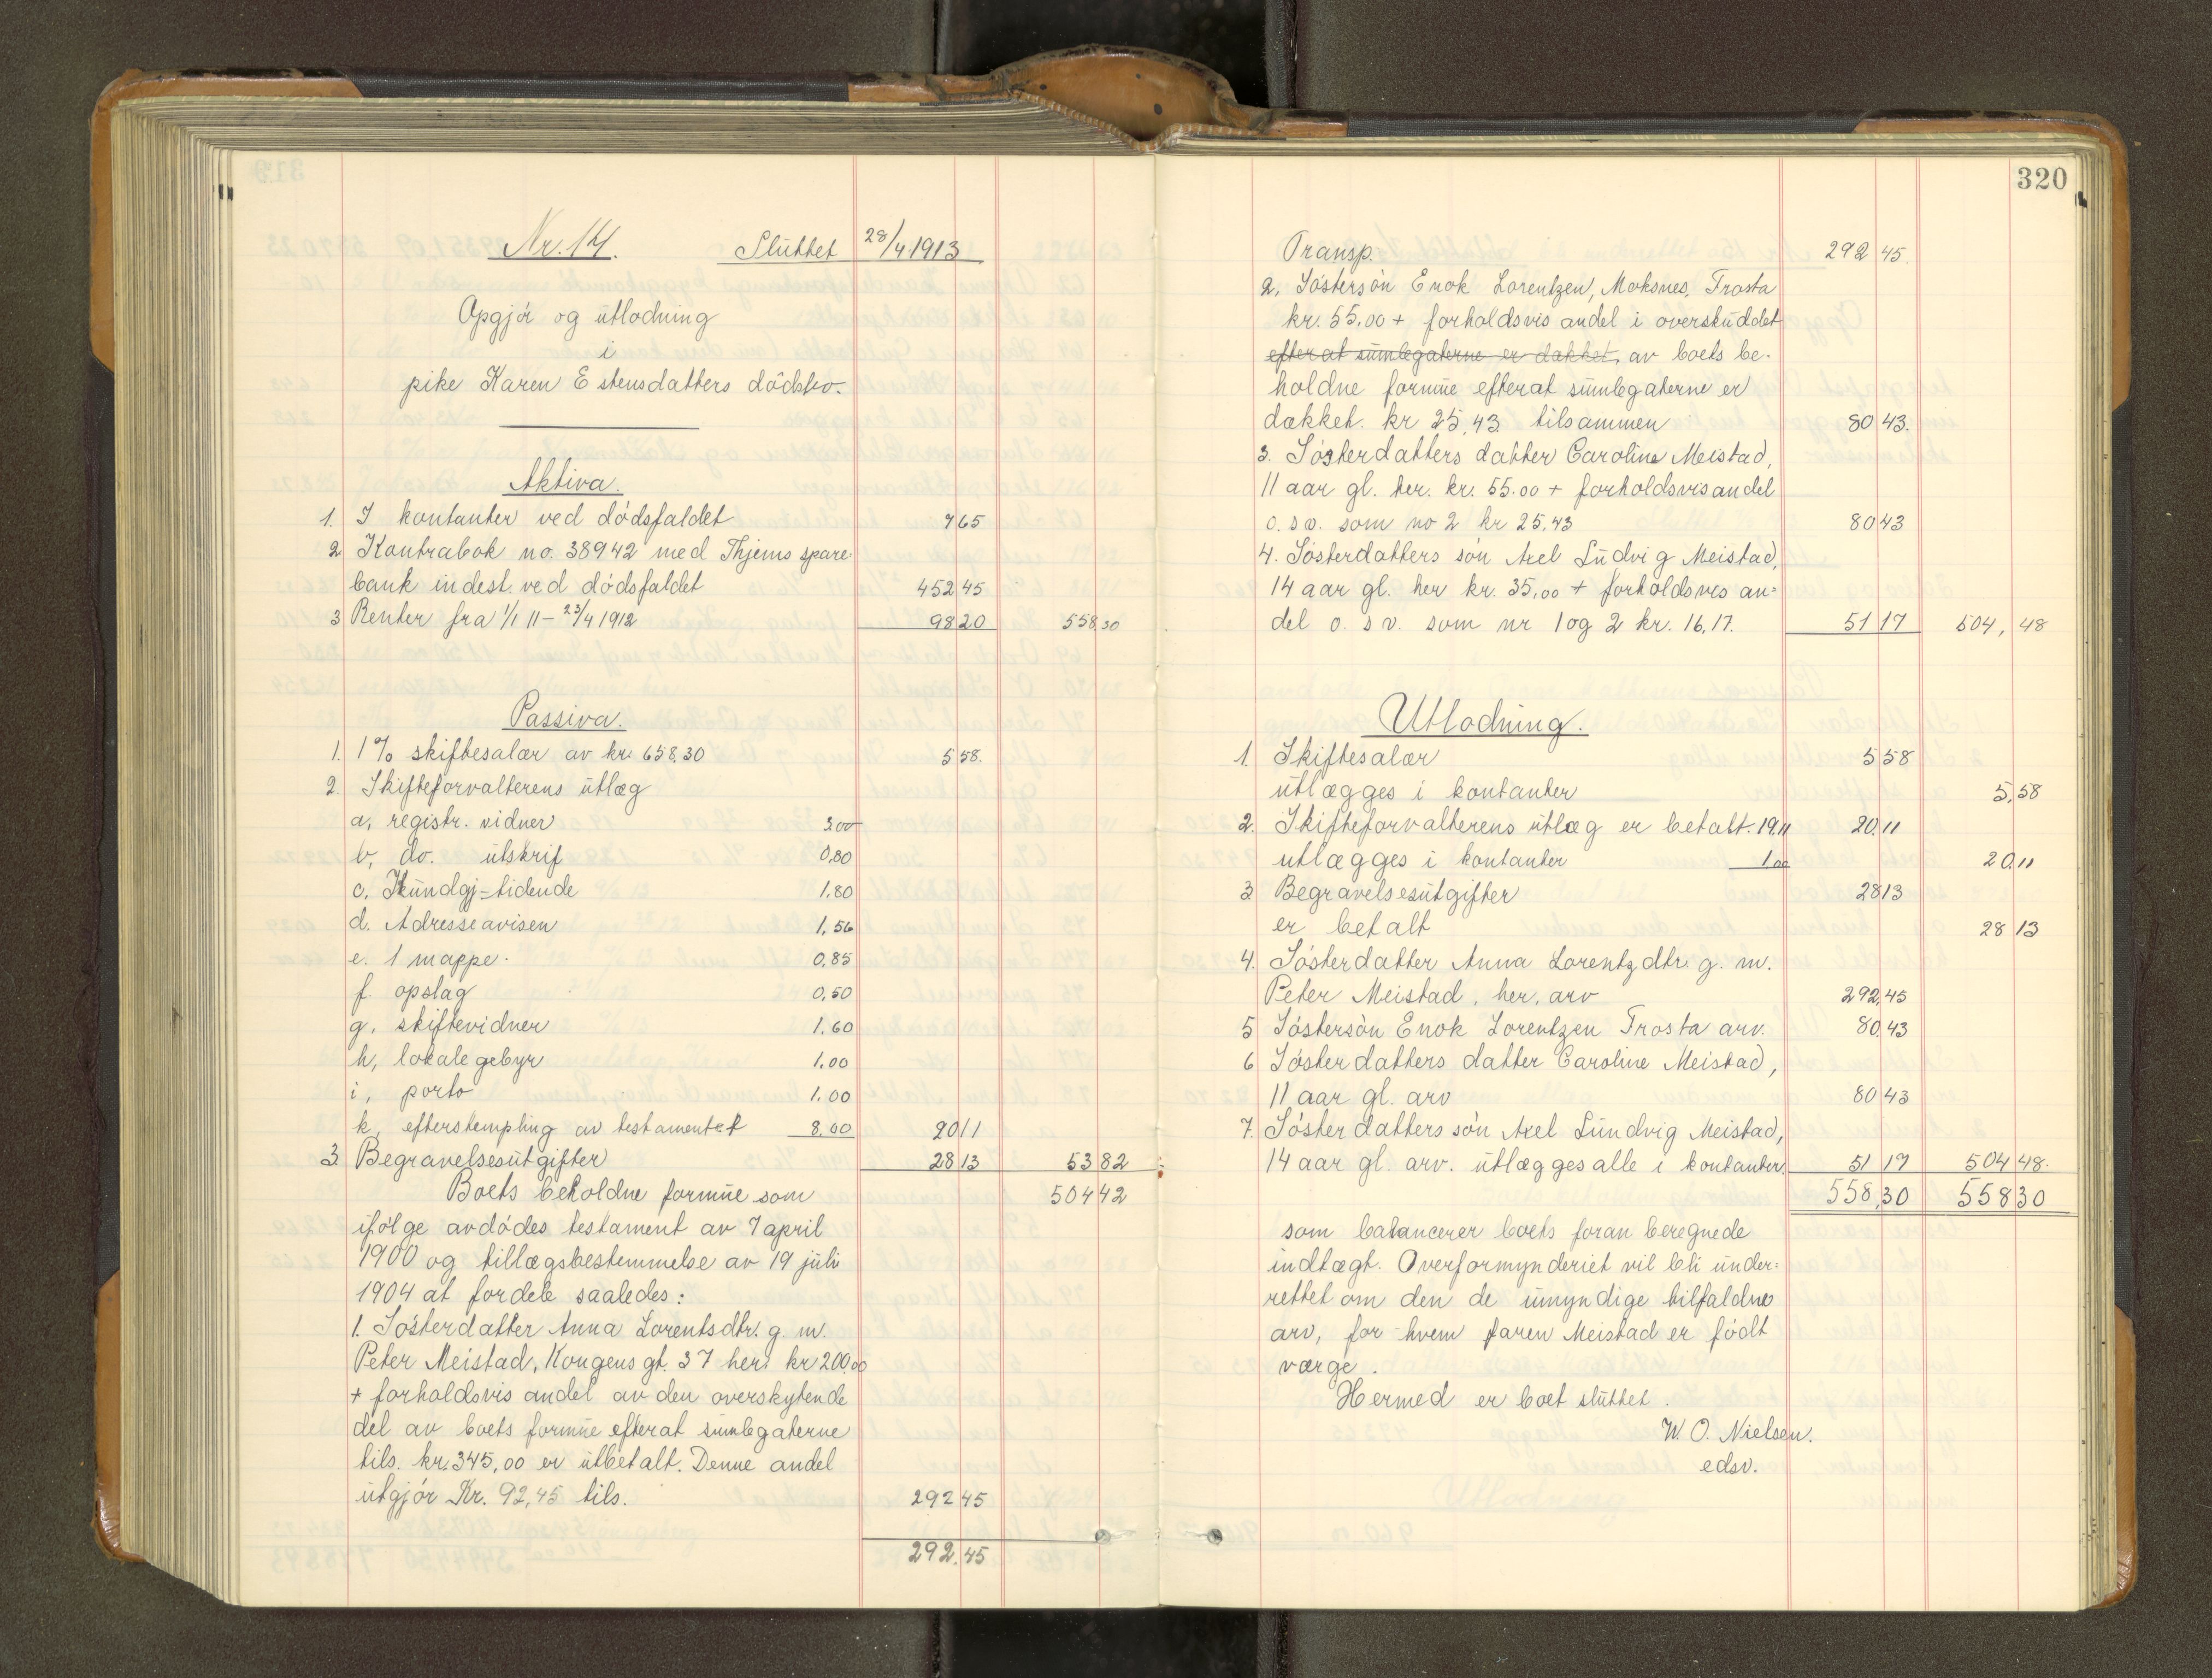 Nr. 14. Sluttet 28/4 1913
Opgjór og útlodning
i
pike Karen Estensdatters dódsbo.
Aktiva.
1. I kontanter ved dódsfaldet 7 65
2 Kontrabok no. 38942 med Thjems spare-
bank indest. ved dódsfaldet 452 45
3 Renter fra 1/1 11 - 23/4 1912 98 20 558,30
Passiva.
1. 1% skiftesalær av kr. 658,30 5 58.
2. Skifteforvalterens útlæg
a, registr. vidner 3,00
b, do. útskrif 0,80
c, Kúndgj-tidende 1.80
d. Adresseavisen 1,56
e. 1 mappe. 0,85
f. opslag 0,50
g. skiftevidner 1.60
h, lokalegebyr 1.00
i, porto 1.00
k, efterstempling av testamentet 8,00 20 11
3. Begravelsesútgifter 28 13 53 82
Boets beholdne formúe som 504 42
ifólge avdódes testament av 7 april
1900 og tillægsbestemmelse av 19 júli
1904 at fordele saaledes:
1. Sósterdatter Anna Lorentsdtr. g. m.
Peter Meistad, Kongens gt. 37 her, kr 200,00
+ forholdsvis andel av den overskytende
del av boets formúe efterat súmlegaterne
tils. kr. 345,00 er útbetalt. Denne andel
útgjór Kr. 92,45 tils. 292 45
292.45
320
Transp. 292 45.
2, Sóstersón Enok Lorentzen, Moksnes, Frosta
kr. 55,00 + forholdsvis andel i overskúddet
efter at súmlegaterne er dækket, av boets be-
holdne formúe efterat súmlegaterne er
dækket. kr 25,43 tilsammen 80 43.
3. Sósterdatters datter Caroline Meistad,
11 aar gl. her. kr. 55.00 + forholdsvis andel
o. s v. som no 2 kr 25,43 80 43
4. Sósterdatters són Axel Lúdvig Meistad,
14 aar gl. her kr. 35,00 + forholdsvis an-
del o. s v. som nr 1 og 2 kr. 16,17. 51 17 504, 48
Utlodning.
1. Skiftesalær 5 58
útlægges i kontanter 5,58
2. Skifteforvalterens útlæg er betalt. 19.11 20.11
utlægges i kontanter 1.00 20.11
3 Begravelsesútgifter 28 13
er betalt 28 13
4. Sósterdatter Anna Lorentzdtr. g. m.
Peter Meistad, her, arv 292,45
5 Sóstersón Enok Lorentzen Frosta arv. 80.43
6 Sósterdatters datter Caroline Meistad,
11 aar gl. arv 80 43
7. Sósterdatters són Axel Lúndvig Meistad,
14 aar gl. arv. útlægges alle i kontanter. 51 17 504 48.
558,30 558 30
som balancerer boets foran beregnede
indtægt. Overformynderiet vil bli únder-
rettet om den de úmyndige tilfaldne
arv, for hvem faren Meistad er fódt
værge.
Hermed er boet slúttet.
W. O. Nielsen.
edsv.